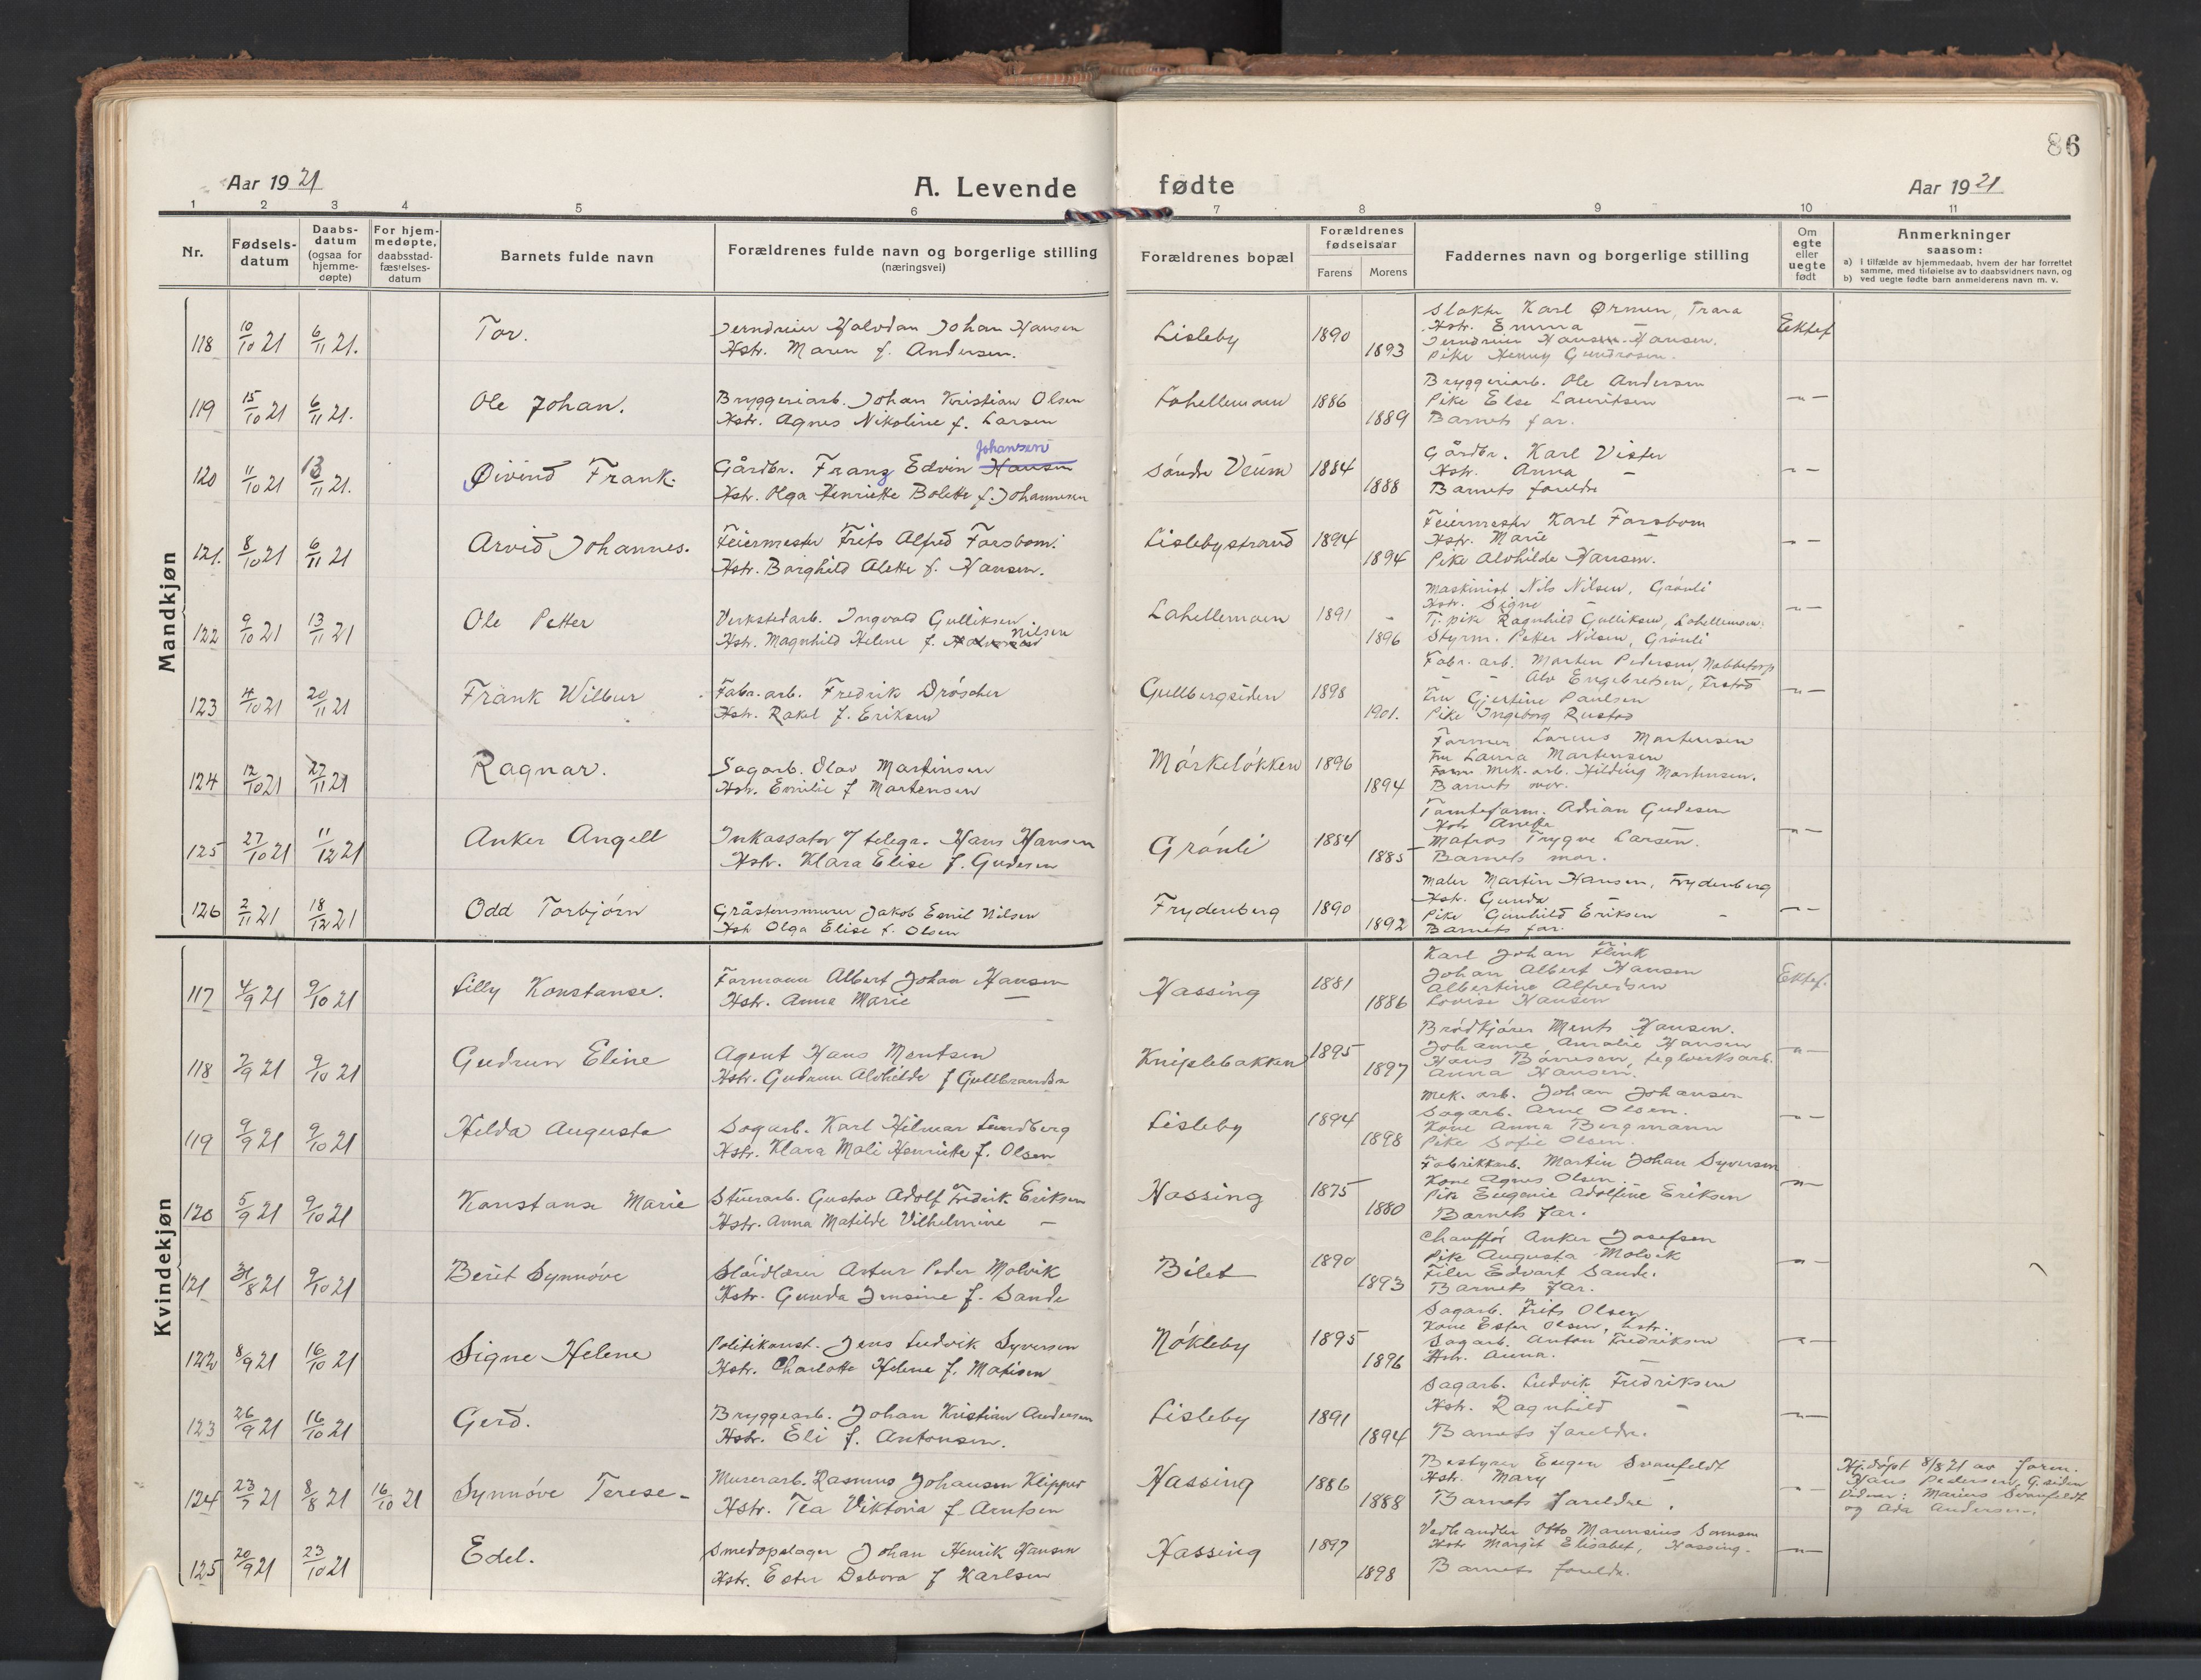 86
Aar 1921
A. Levende
fødte
Aar 1921
1 2 3 4 5 6 7 8 9 10 11
Nr.
Fødsels-
datum
Daabs-
datum
(ogsaa for
hjemme-
døpte)
For hjem-
medøpte,
daabsstad-
fæstelses-
datum
Barnets fulde navn
Forældrenes fulde navn og borgerlige stilling
(næringsvei)
Forældrenes bopæl
Forældrenes
fødselsaar
Farens Morens
Faddernes navn og borgerlige stilling
Om
egte
eller
uegte
født
Anmerkninger
saasom:
a) I tilfælde av hjemmedaab, hvem der har forrettet
samme, med tilføielse av to daabsvidners navn, og
b) ved uegte fødte barn anmelderens navn m. v.
Mandkjøn
118 10/10 21 6/11 21. Tor.
Jerndreier Halvdan Johan Hansen
Hstr. Maren f. Andersen.
Lisleby 1890 1893
Slakter Karl Ørmen, Trara
Hstr. Emma —
Jerndreier Hansen.
Pike Henny Gundrosen.
Ektef
119 15/10 21 6/11 21. Ole Johan.
Bryggeriarb. Johan Kristian Olsen
Hstr. Agnes Nikoline f. Larsen
Lahellemoen 1886 1889
Bryggeriarb. Ole Andersen
Pike Else Lauritsen
Barnets far.
—"—
120 11/10 21 13/11 21. Øivind Frank.
Johansen
Gårdbr. Franz Edvin Hansen
Hstr. Olga Henriette Bolette f. Johannesen
Søndre Veum 1884 1888
Gårdbr. Karl Vister
Hstr. Anna —
Barnets foreldre
—"—
121. 8/10 21 6/11 21 Arvid Johannes.
Feiermester Frits Alfred Forsbom.
Hstr. Borghild Alette f. Hansen.
Lislebystrand 1894 1894
Feiermester Karl Forsbom
Hstr. Marie —
Pike Alvhilde Hansen.
—"—
122 9/10 21 13/11 21 Ole Petter
Verkstedarb. Ingvald Gulliksen
Hstr. Magnhild Helene f. Nilsen
Lahellemoen 1891 1896
Maskinist Nils Nilsen, Grønli
Hstr. Signe —
Tj. pike Ragnhild Gulliksen, Lahellemoen.
Styrm. Petter Nilsen, Grønli
—"—
123 4/10 21 20/11 21 Frank Wilbur
Fabr. arb. Fredrik Drøscher
Hstr. Rakel f. Eriksen
Gullbergsiden 1898 1901.
Fabr. arb. Morten Pedersen, Nabbetorp
— — Alv Engebretsen,
Fru Gjertine Paulsen
Pike Ingeborg Rustad
—"—
124 12/10 21 27/11 21 Ragnar.
Sagarb. Olav Martinsen
Hstr. Emilie f Martensen
Mørkeløkken 1896 1894
Former Martensen
Fru Laura Martensen
Mek. arb. Hilding Martensen.
Barnets mor.
125 27/10 21 11/12 21 Anker Angell
Inkassator v/ telegr. Hans Hansen
Hstr. Klara Elise f. Gudesen
Grønli 1884 1885
Tomteform. Adrian Gudesen
Hstr Anette
Matros Trygve Larsen.
Barnets mor.
—"—
126 2/11 21 18/12 21 Odd Torbjørn
Gråstensmurer Jakob Emil Nilsen
Hstr Olga Elise f. Olsen
Frydenberg 1890 1892
Maler Martin Hansen, Frydenberg
Hstr. Gunda —
Pike Gunhild Eriksen —
Barnets far.
—"—
Kvindekjøn
117 4/9 21 9/10 21 Lilly Konstanse.
Formann Albert Johan Hansen
Hstr. Anna Marie —
Hassing 1881 1886
Karl Johan Flink
Johan Albert Hansen
Albertine Alfredsen
Lovise Hansen
Ektef.
118 7/9 21 9/10 21 Gudrun Eline
Agent Hans Mentsen
Hstr. Gudrun Alvhilde f Gulbrandsen
Kniplebakken 1895 1897
Brødkjører Ments Hansen.
Johanne Auralie Hansen
Hans Børresen, teglverksarb.
Anna Hansen.
—"—
119 9/9 21 9/10 21 Hilda Augusta
Sagarb. Karl Hilmar Lundberg
Hstr. Klara Mali Henriette f. Olsen
Lisleby 1894 1898
Mek. arb. Johan Johansen
Sagarb. Arne Olsen.
Kone Anna Bergmann
Pike Sofie Olsen.
—"—
120 5/9 21 9/10 21 Konstanse Marie
Stuerarb. Gustav Adolf Fredrik Eriksen
Hstr. Anna Matilde Vilhelmine —
Hassing 1875 1880
Fabrikkarb. Martin Johan Syversen
Kone Agnes Olsen.
Pike Eugenie Adolfine Eriksen
Barnets far.
—"—
121 31/8 21 9/10 21 Beret Synnøve
Sløidlærer Artur Peder Molvik
Hstr. Gunda Jensine f. Sande
Bilet 1890 1893
Chauffør Anker Josefsen
Pike Augusta Molvik
Filer Edvart Sande.
Barnets far.
—"—
122 8/9 21 16/10 21 Signe Helene
Politikonst. Jens Ludvik Syversen
Hstr. Charlotte Helene f. Matisen
Nøkleby 1895 1896
Sagarb. Frits Olsen
Kone Ester Olsen, hstr.
Sagarb. Anton Fredriksen
Hstr. Anna. —
—"—
123 26/9 21 16/10 21 Gerd.
Bryggearb. Johan Kristian Andersen
Hstr. Eli f. Antonsen.
Lisleby 1891 1894
Sagarb. Ludvik Fredriksen
Hstr. Ragnhild —
Barnets foreldre.
—"—
124 23/7 21 8/8 21 16/10 21 Synnøve Terese
Murerarb. Rasmus Johansen Klipper
Hstr. Tea Viktoria f Arntsen
Hassing 1886 1888
Bestyrer Eugen Svanfeldt
Hstr. Mary —
Barnets foreldre.
—"—
Hj.døpt 8/8 21 av form.
Hans Pedersen, G.siden
Vidner: Marius Svanfeldt
og Ada Andersen.
125 20/9 21 23/10 21 Edel.
Smedopslager Johan Henrik Hansen
Hstr. Ester Debora f Karlsen
Hassing 1897 1898
Vedhandler Otto Marensius Sørensen
Hstr Margit Elisabet, Hassing.
Barnets foreldre.
—"—